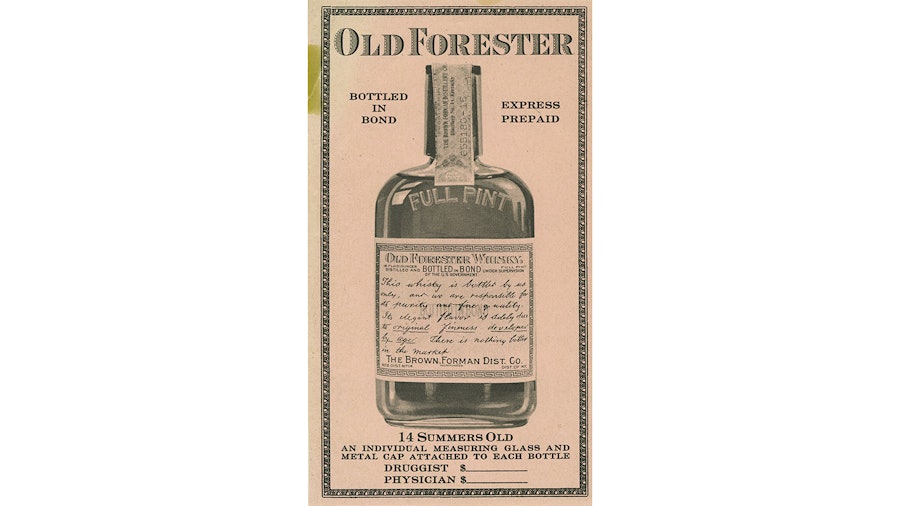 OLD FORESTER
BOTTLED
IN
BOND
EXPRESS
PREPAID
THE BROWN FORMAN DISTILLERY CO.
FULL PINT
OLD FORESTER WHISKY.
16 FLUID OUNCES FULL PINT
DISTILLED AND BOTTLED IN BOND UNDER SUPERVISION
OF THE U.S. GOVERNMENT.
This whisky is bottled by us
only, and we are responsible for
its purity and fine quality.
Its elegant flavor is solely due
to original fineness developed
by age. There is nothing better
in the market.
THE BROWN, FORMAN DIST. CO.
INCORPORATED
DIST. OF KY.
14 SUMMERS OLD
AN INDIVIDUAL MEASURING GLASS AND
METAL CAP ATTACHED TO EACH BOTTLE
DRUGGIST $
PHYSICIAN $